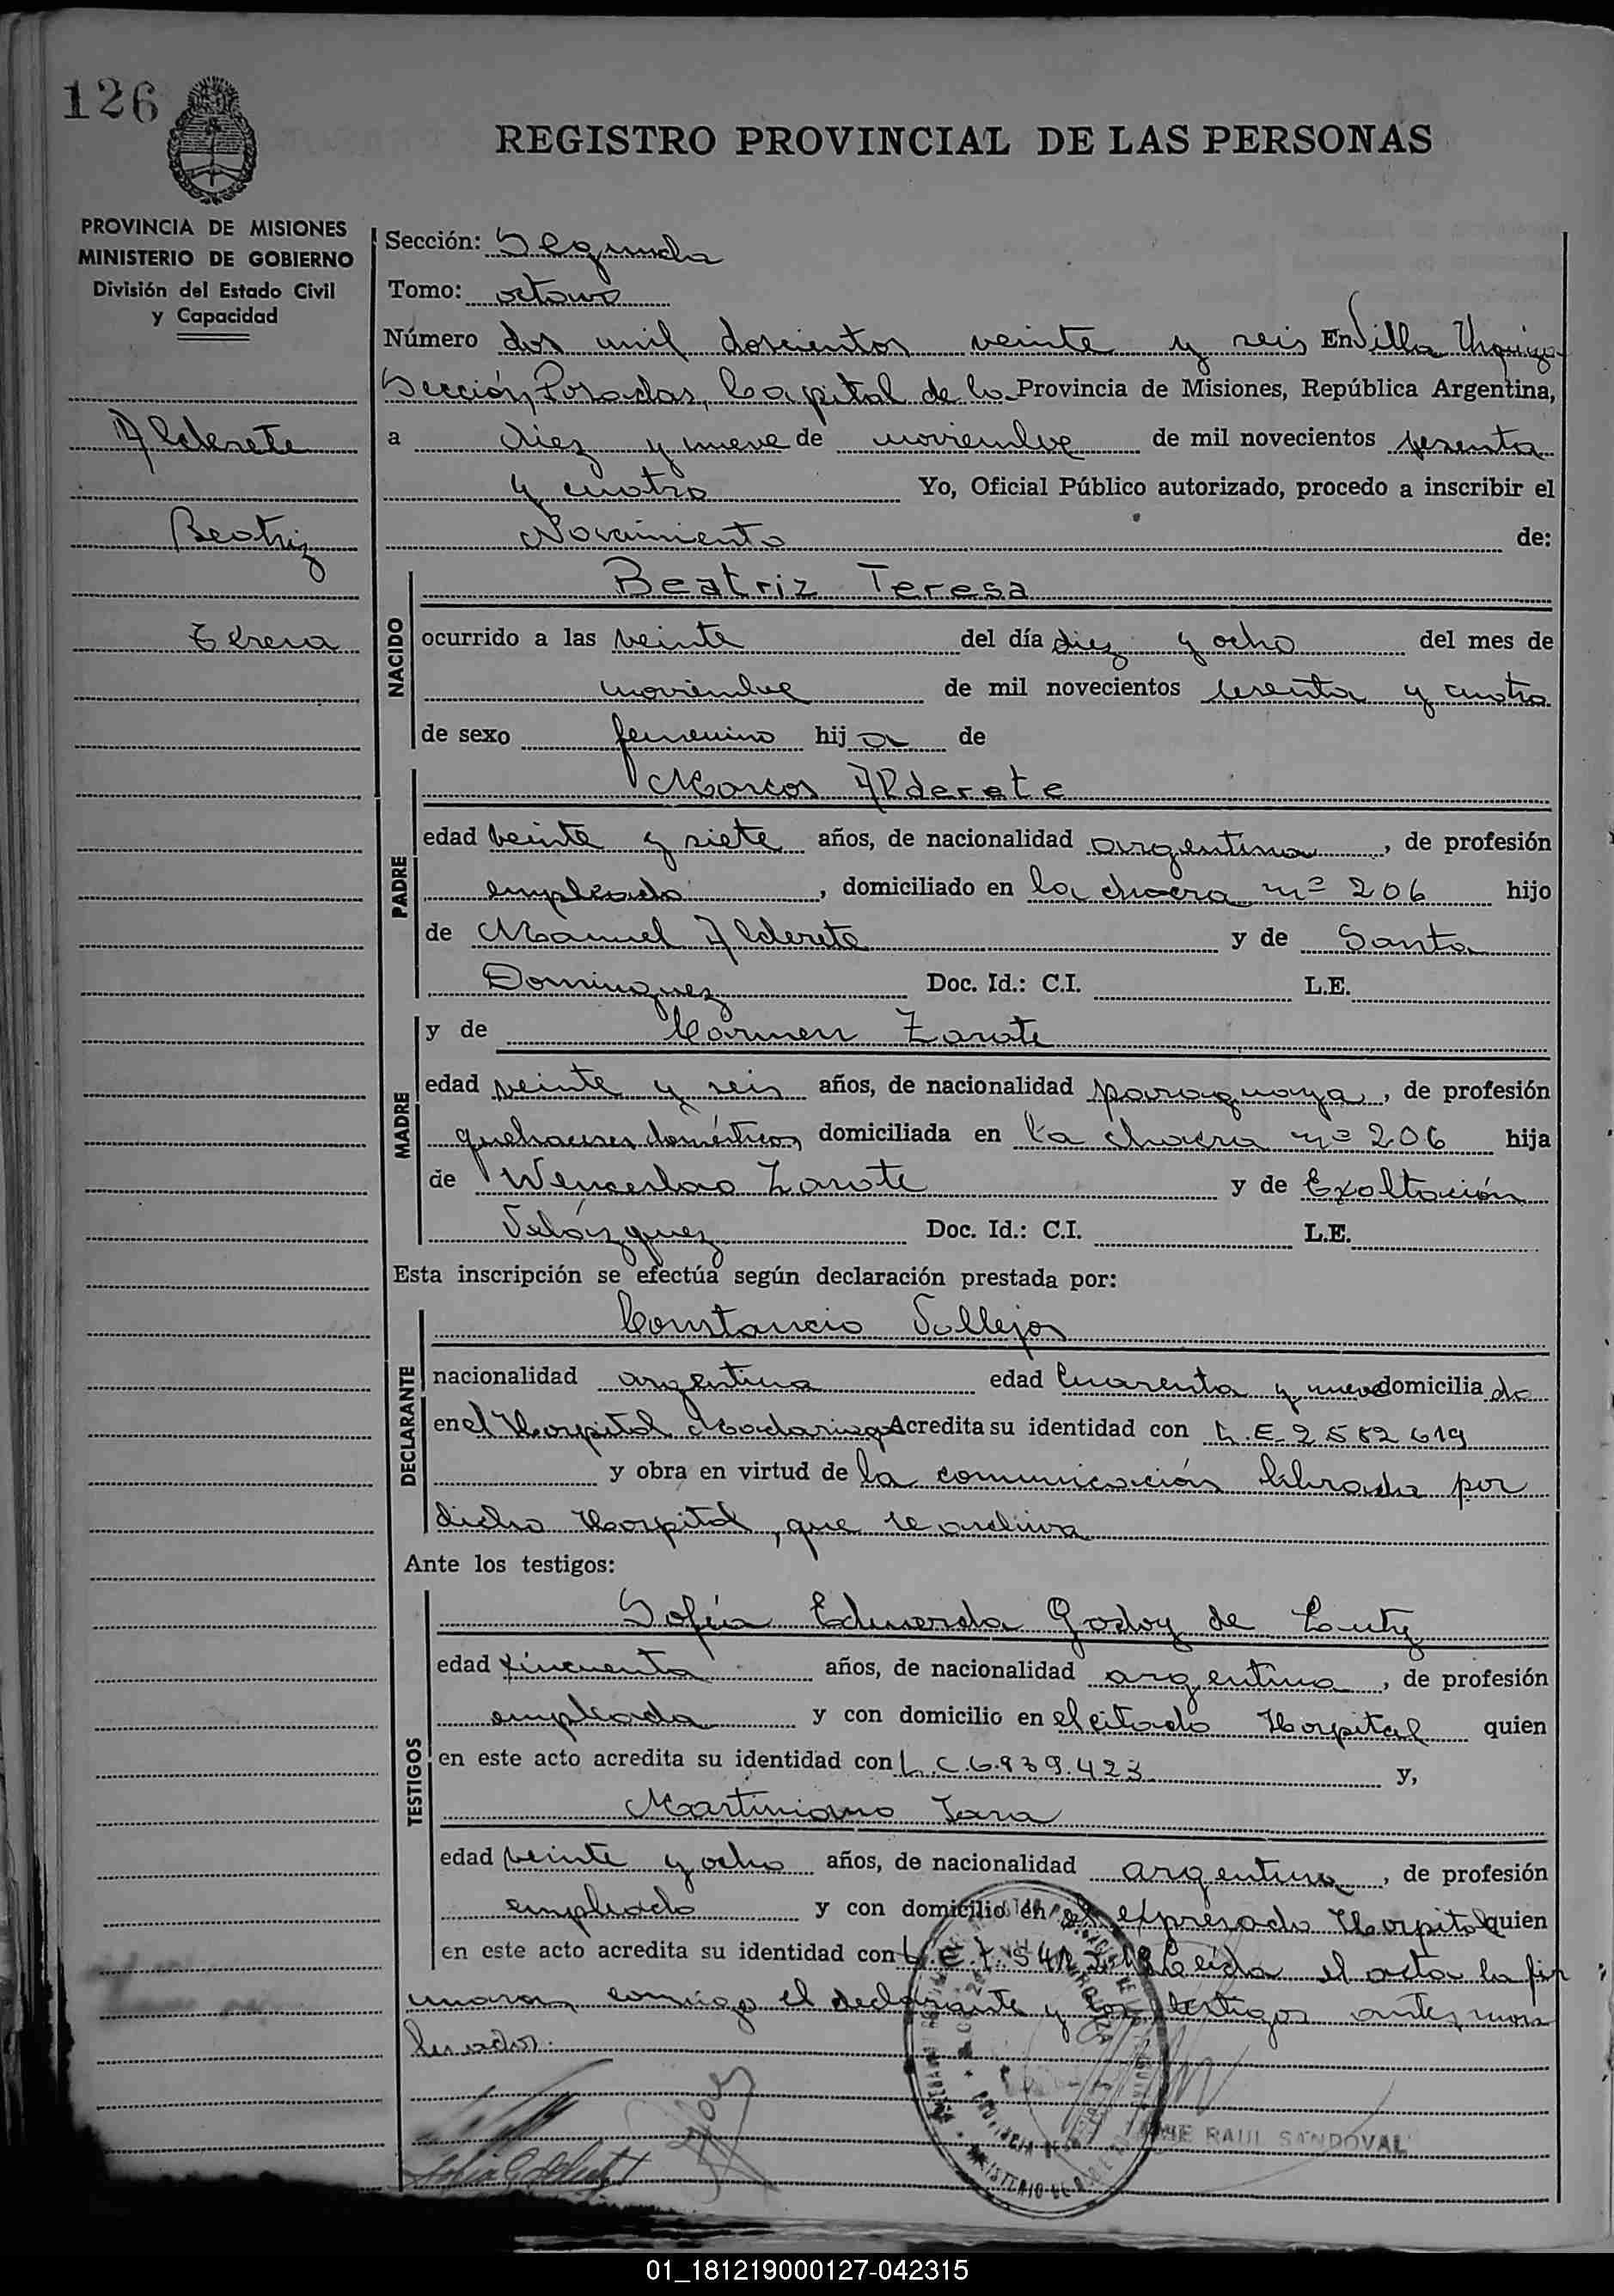 126
REGISTRO PROVINCIAL DE LAS PERSONAS
PROVINCIA DE MISIONES
MINISTERIO DE GOBIERNO
División del Estado Civil
y Capacidad
Alderete
Beatriz
Teresa
Sección: Segunda
Tomo: octavo
Número dos mil doscientos veinte y seis En Villa Urquiza
Sección, Posadas, Capital de la Provincia de Misiones, República Argentina,
a diez y nueve de noviembre de mil novecientos sesenta
y cuatro Yo, Oficial Público autorizado, procedo a inscribir el
Nacimiento de:
NACIDO
Beatriz Teresa
ocurrido a las veinte del día diez y ocho del mes de
noviembre de mil novecientos sesenta y cuatro
de sexo femenino hij a de
PADRE
Marcos Alderete
edad veinte y siete años, de nacionalidad argentina, de profesión
empleado, domiciliado en la chacra nº 206 hijo
de Manuel Alderete y de Santa
Dominguez Doc. Id.: C.I. L.E.
MADRE
y de Carmen Zarate
edad veinte y seis años, de nacionalidad paraguaya, de profesión
quehaceres domésticos, domiciliada en la chacra nº 206 hija
de Wenceslao Zarate y de Exaltación
Velázquez Doc. Id.: C.I. L.E.
Esta inscripción se efectúa según declaración prestada por:
DECLARANTE
Constancio Vallejos
nacionalidad argentina edad cuarenta y nueve domicilia do
en el Hospital Madariaga Acredita su identidad con L.E. 2582619
y obra en virtud de la comunicación librada por
dicho Hospital, que se archiva
Ante los testigos:
TESTIGOS
Sofía Eduarda Godoy de
edad cincuenta años, de nacionalidad argentina, de profesión
empleada y con domicilio en el citado Hospital quien
en este acto acredita su identidad con L.C. 6.939.423 y,
Martiniano Jara
edad veinte y ocho años, de nacionalidad argentina, de profesión
empleado y con domicilio en el expresado Hospital quien
en este acto acredita su identidad con L.E. Leída el acta la fir
maron conmigo el declarante y los testigos antes men
cionados.
RAUL SANDOVAL
01_181219000127-042315